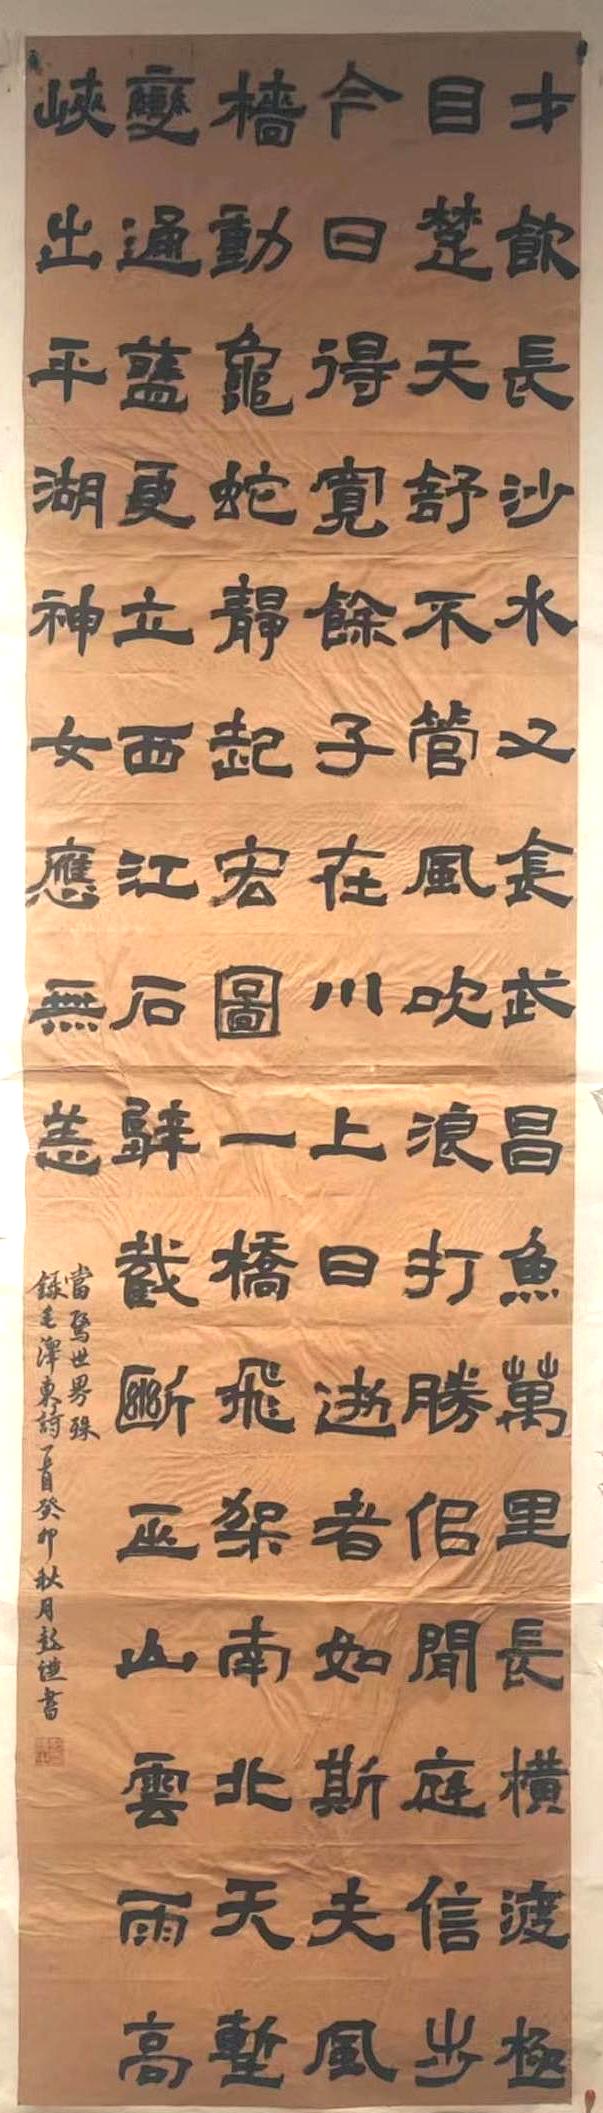 才飲長沙水又食武昌魚萬里長橫渡極
目楚天舒不管風吹浪打勝佀閒庭信步
今日得寬餘子在川上曰逝者如斯夫風
檣動龜蛇靜起宏圖一橋飛架南北天塹
變通藍更立西江石壁截斷巫山雲雨高
峽出平湖神女應無恙
當驚世界殊
錄毛澤東詩一首癸卯秋月書